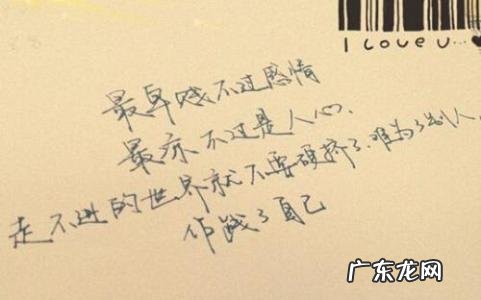 I Love U...
最卑贱不过感情
最凉不过是人心.
走不进的世界就不要硬挤了.难为了别人.
作贱了自己
广东龙网